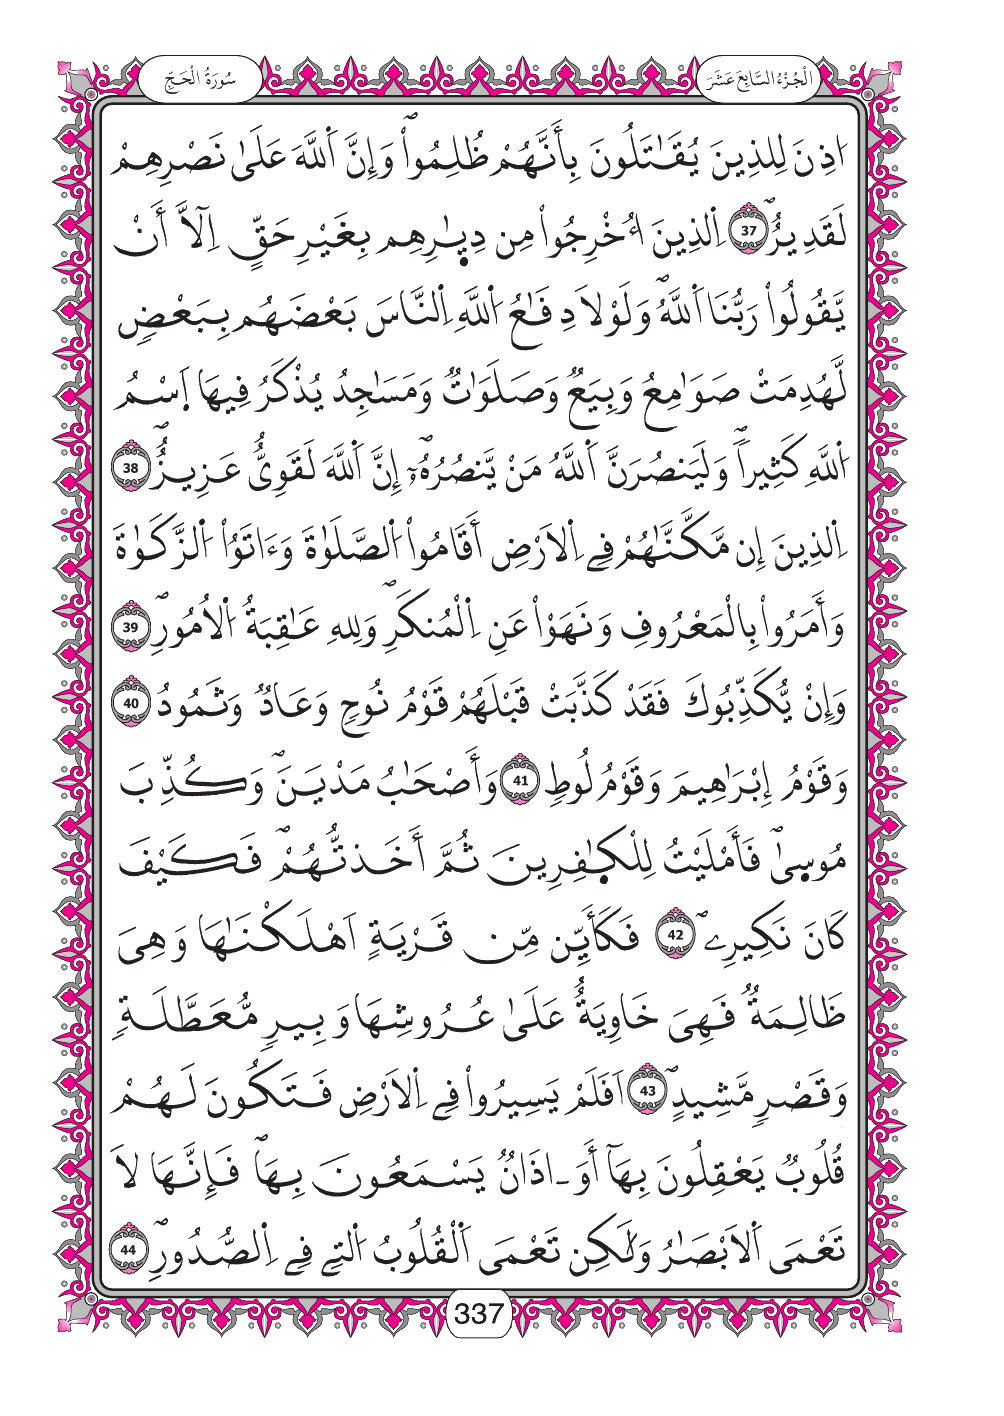 سُورَةُ الْحَجِّ
الْجُزْءُ السَّابِعَ عَشَرَ
اذِنَ لِلذِينَ يُقَٰتَلُونَ بِأَنَّهُمْ ظُلِمُواْۖ وَإِنَّ اَ۬للَّهَ عَلَىٰ نَصْرِهِمْ
لَقَدِيرٌۖ 37 اِ۬لذِينَ أُخْرِجُواْ مِن دِيٰ۪رِهِم بِغَيْرِ حَقٍّ اِلَّآ أَنْ
يَّقُولُواْ رَبُّنَا اَ۬للَّهُۖ وَلَوْلَا دِفَٰعُ اُ۬للَّهِ اِ۬لنَّاسَ بَعْضَهُم بِبَعْضٖ
لَّهُدِمَتْ صَوَٰمِعُ وَبِيَعٞ وَصَلَوَٰتٞ وَمَسَٰجِدُ يُذْكَرُ فِيهَا اَ۪سْمُ
اُ۬للَّهِ كَثِيراٗۖ وَلَيَنصُرَنَّ اَ۬للَّهُ مَنْ يَّنصُرُهُۥٓۖ إِنَّ اَ۬للَّهَ لَقَوِيٌّ عَزِيزٌۖ 38
اِ۬لذِينَ إِن مَّكَّنَّٰهُمْ فِے اِ۬لَارْضِ أَقَامُواْ اُ۬لصَّلَوٰةَ وَءَاتَوُاْ اُ۬لزَّكَوٰةَ
وَأَمَرُواْ بِالْمَعْرُوفِ وَنَهَوْاْ عَنِ اِ۬لْمُنكَرِۖ وَلِلهِ عَٰقِبَةُ اُ۬لُامُورِۖ 39
وَإِنْ يُّكَذِّبُوكَ فَقَدْ كَذَّبَتْ قَبْلَهُمْ قَوْمُ نُوحٖ وَعَادٞ وَثَمُودُ 40
وَقَوْمُ إِبْرَٰهِيمَ وَقَوْمُ لُوطٖ 41 وَأَصْحَٰبُ مَدْيَنَۖ وَكُذِّبَ
مُوس۪ىٰۖ فَأَمْلَيْتُ لِلْكٰ۪فِرِينَ ثُمَّ أَخَذتُّهُمْۖ فَكَيْفَ
كَانَ نَكِيرِےۖ 42 فَكَأَيِّن مِّن قَرْيَةٍ اَهْلَكْنَٰهَا وَهِيَ
ظَالِمَةٞ فَهِيَ خَاوِيَةٌ عَلَىٰ عُرُوشِهَا وَبِيرٖ مُّعَطَّلَةٖ
وَقَصْرٖ مَّشِيدٍۖ 43 اَفَلَمْ يَسِيرُواْ فِے اِ۬لَارْضِ فَتَكُونَ لَهُمْ
قُلُوبٞ يَعْقِلُونَ بِهَآ أَوَ ـ اذَانٞ يَسْمَعُونَ بِهَاۖ فَإِنَّهَا لَا
تَعْمَى اَ۬لَابْصَٰرُ وَلَٰكِن تَعْمَى اَ۬لْقُلُوبُ اُ۬لتِے فِے اِ۬لصُّدُورِۖ 44
337